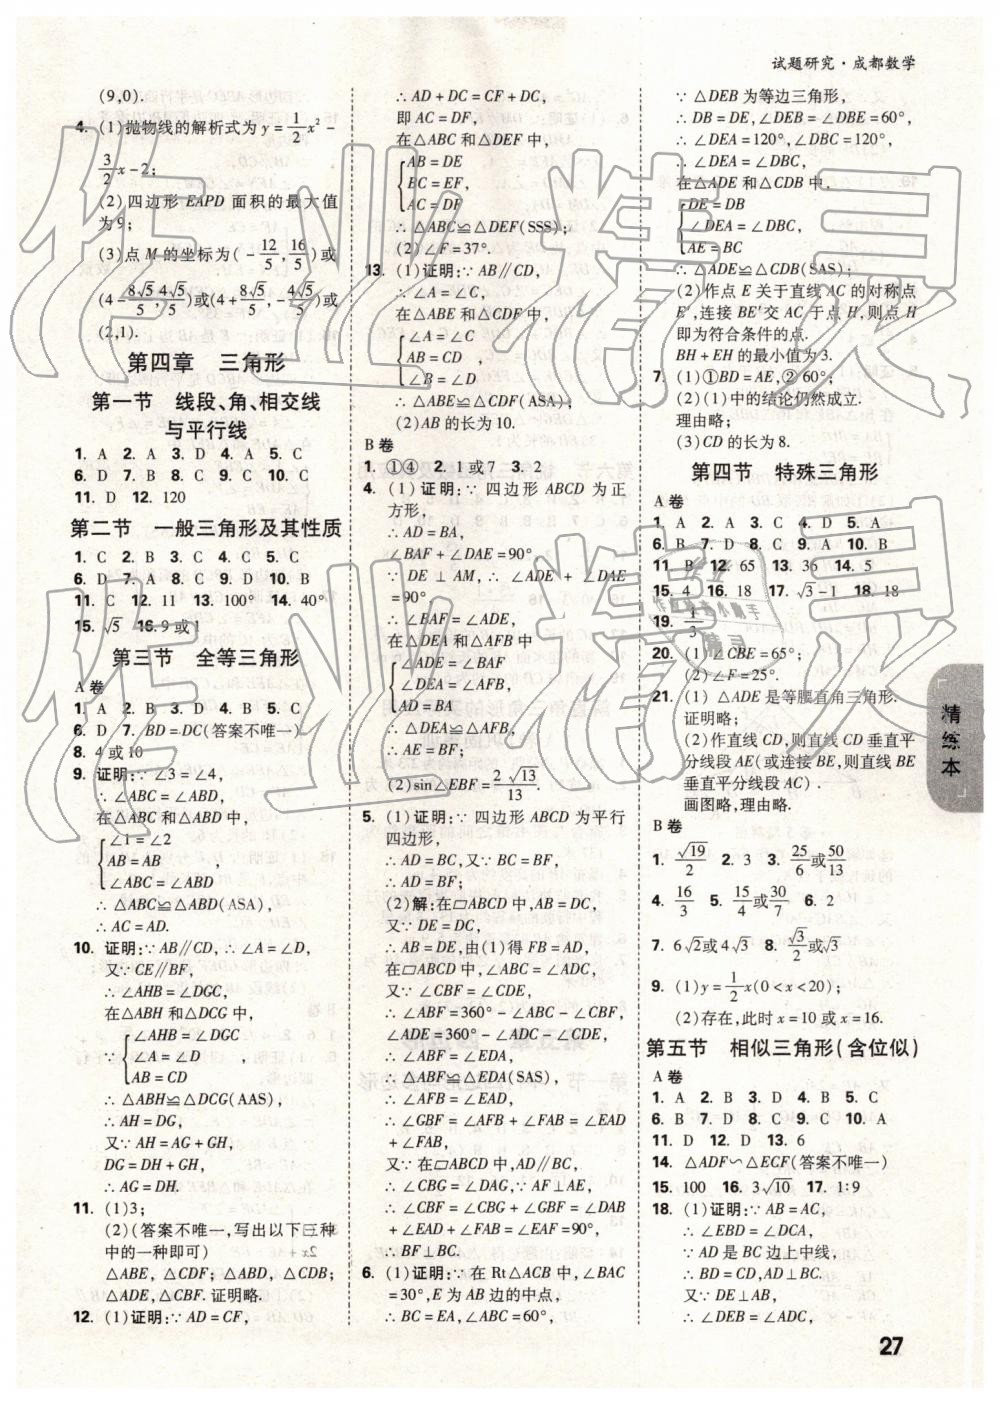 试题研究·成都数学
(9,0).
4. (1)抛物线的解析式为 y=1/2x²-
3/2x-2;
(2)四边形 EAPD 面积的最大值
为9;
(3)点 M 的坐标为(-12/5,16/5)或
(4-8√5/5,4√5/5)或(4+8√5/5,-4√5/5)或
(2,1).
第四章 三角形
第一节 线段、角、相交线
与平行线
1. A 2. A 3. D 4. A 5. C
6. D 7. B 8. C 9. B 10. C
11. D 12. 120
第二节 一般三角形及其性质
1. C 2. B 3. C 4. C 5. C
6. D 7. A 8. B 9. D 10. B
11. C 12. 11 13. 100° 14. 40°
15. √5 16. 9 或 1
第三节 全等三角形
A 卷
1. A 2. A 3. B 4. D 5. B
6. D 7. BD=DC(答案不唯一)
8. 4 或 10
9. 证明:∵∠3=∠4,
∴∠ABC=∠ABD,
在△ABC 和△ABD 中,
{∠1=∠2
AB=AB ,
∠ABC=∠ABD
∴△ABC≌△ABD(ASA),
∴AC=AD.
10. 证明:∵AB∥CD,∴∠A=∠D,
又∵CE∥BF,
∴∠AHB=∠DGC,
在△ABH 和△DCG 中,
∵{∠AHB=∠DGC
∠A=∠D ,
AB=CD
∴△ABH≌△DCG(AAS),
∴AH=DG,
又∵AH=AG+GH,
DG=DH+GH,
∴AG=DH.
11. (1)3;
(2)(答案不唯一,写出以下三种
中的一种即可)
△ABE,△CDF;△ABD,△CDB;
△ADE,△CBF. 证明略.
12. (1)证明:∵AD=CF,
∴AD+DC=CF+DC,
即 AC=DF,
在△ABC 和△DEF 中,
{AB=DE
BC=EF,
AC=DF
∴△ABC≌△DEF(SSS);
(2)∠F=37°.
13. (1)证明:∵AB∥CD,
∴∠A=∠C,
在△ABE 和△CDF 中,
{∠A=∠C
AB=CD ,
∠B=∠D
∴△ABE≌△CDF(ASA);
(2)AB 的长为 10.
B 卷
1. ①④ 2. 1 或 7 3. 2
4. (1)证明:∵四边形 ABCD 为正
方形,
∴AD=BA,
∠BAF+∠DAE=90°,
∵DE⊥AM,∴∠ADE+∠DAE
=90°,
∴∠BAF=∠ADE,
在△DEA 和△AFB 中
{∠ADE=∠BAF
∠DEA=∠AFB,
AD=BA
∴△DEA≌△AFB,
∴AE=BF;
(2)sin∠EBF=2√13/13.
5. (1)证明:∵四边形 ABCD 为平行
四边形,
∴AD=BC,又∵BC=BF,
∴AD=BF;
(2)解:在▱ABCD 中,AB=DC,
又∵DE=DC,
∴AB=DE,由(1)得 FB=AD,
在▱ABCD 中,∠ABC=∠ADC,
又∵∠CBF=∠CDE,
∴∠ABF=360°-∠ABC-∠CBF,
∠ADE=360°-∠ADC-∠CDE,
∴∠ABF=∠EDA,
∴△ABF≌△EDA(SAS),
∴∠AFB=∠EAD,
∴∠GBF=∠AFB+∠FAB=∠EAD
+∠FAB,
又∵在▱ABCD 中,AD∥BC,
∴∠CBG=∠DAG,∵AF⊥AE,
∴∠CBF=∠CBG+∠GBF=∠DAB
+∠EAD+∠FAB=∠EAF=90°,
∴BF⊥BC.
6. (1)证明:∵在 Rt△ACB 中,∠BAC
=30°,E 为 AB 边的中点,
∴BC=EA,∠ABC=60°,
∵△DEB 为等边三角形,
∴DB=DE,∠DEB=∠DBE=60°,
∴∠DEA=120°,∠DBC=120°,
∴∠DEA=∠DBC,
在△ADE 和△CDB 中,
{DE=DB
∠DEA=∠DBC,
AE=BC
∴△ADE≌△CDB(SAS);
(2)作点 E 关于直线 AC 的对称点
E′,连接 BE′交 AC 于点 H,则点 H
即为符合条件的点.
BH+EH 的最小值为 3.
7. (1)①BD=AE,②60°;
(2)(1)中的结论仍然成立.
理由略;
(3)CD 的长为 8.
第四节 特殊三角形
A 卷
1. A 2. A 3. C 4. D 5. A
6. B 7. D 8. C 9. A 10. B
11. B 12. 65 13. 36 14. 5
15. 4 16. 18 17. √3-1 18. 18
19. 1/3
20. (1)∠CBE=65°;
(2)∠F=25°.
21. (1)△ADE 是等腰直角三角形.
证明略;
(2)作直线 CD,则直线 CD 垂直平
分线段 AE(或连接 BE,则直线 BE
垂直平分线段 AC).
画图略,理由略.
B 卷
1. √19/2 2. 3 3. 25/6或50/13
4. 16/3 5. 15/4或30/7 6. 2
7. 6√2或4√3 8. √3/2或√3
9. (1)y=1/2x(0<x<20);
(2)存在,此时 x=10 或 x=16.
第五节 相似三角形(含位似)
A 卷
1. A 2. A 3. D 4. B 5. C
6. B 7. D 8. C 9. C 10. A
11. D 12. D 13. 6
14. △ADF∽△ECF(答案不唯一)
15. 100 16. 3√10 17. 1:9
18. (1)证明:∵AB=AC,
∴∠EBD=∠DCA,
∵AD 是 BC 边上中线,
∴BD=CD,AD⊥BC,
又∵DE⊥AB,
∴∠DEB=∠ADC,
精练本
27
作业精灵
作业精灵